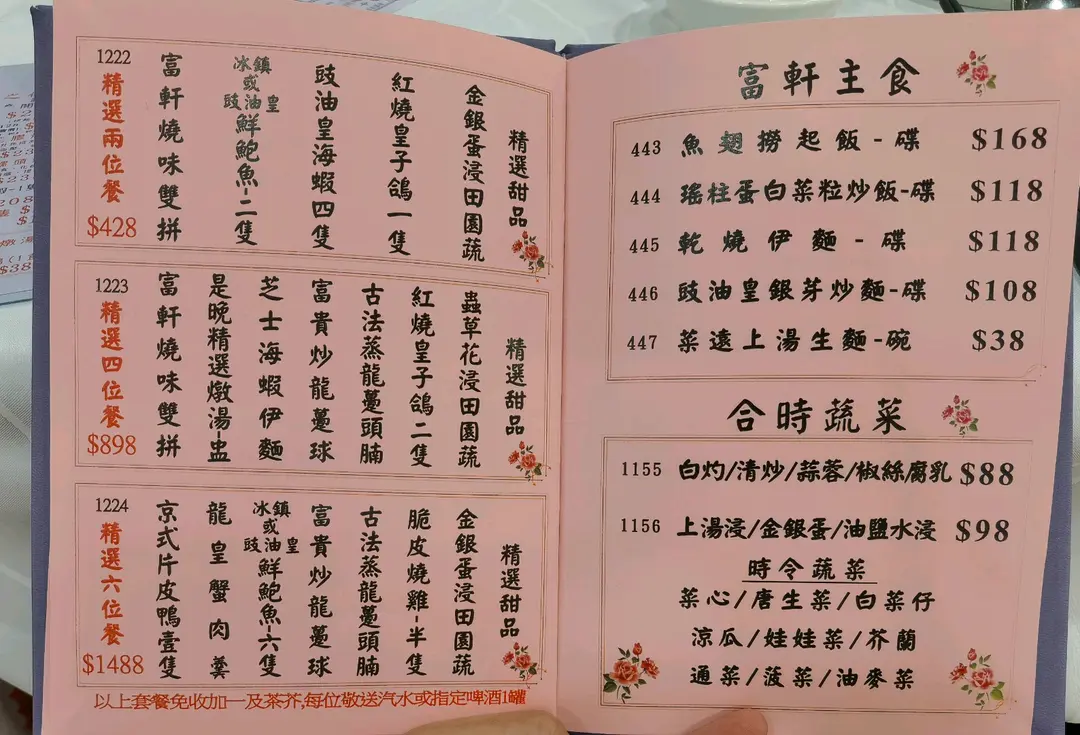 1222
精選兩位餐
$428
富軒燒味雙拼
冰鎮
或
豉油皇
鮮鮑魚-二隻
豉油皇海蝦四隻
紅燒皇子鴿一隻
金銀蛋浸田園蔬
精選甜品
1223
精選四位餐
$898
富軒燒味雙拼
是晚精選燉湯-盅
芝士海蝦伊麵
富貴炒龍躉球
古法蒸龍躉頭腩
紅燒皇子鴿二隻
蟲草花浸田園蔬
精選甜品
1224
精選六位餐
$1488
京式片皮鴨壹隻
龍皇蟹肉羹
冰鎮
或
豉油皇
鮮鮑魚-六隻
富貴炒龍躉球
古法蒸龍躉頭腩
脆皮燒雞-半隻
金銀蛋浸田園蔬
精選甜品
以上套餐免收加一及茶芥,每位敬送汽水或指定啤酒1罐
富軒主食
443 魚翅撈起飯-碟 $168
444 瑤柱蛋白菜粒炒飯-碟 $118
445 乾燒伊麵-碟 $118
446 豉油皇銀芽炒麵-碟 $108
447 菜遠上湯生麵-碗 $38
合時蔬菜
1155 白灼/清炒/蒜蓉/椒絲腐乳 $88
1156 上湯浸/金銀蛋/油鹽水浸 $98
時令蔬菜
菜心/唐生菜/白菜仔
涼瓜/娃娃菜/芥蘭
通菜/菠菜/油麥菜